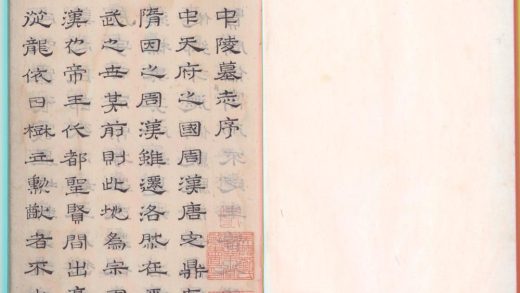 中陵墓志序
中天府之國周漢唐定鼎
隋因之周漢雖遷洛然在
武之世其前則此地為宗
漢也帝王代都聖賢間出
從龍依日樹立勳猷者不